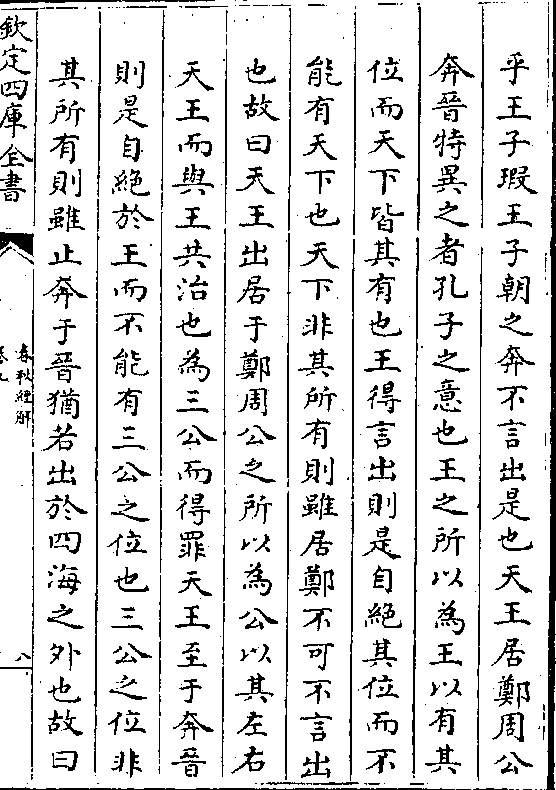 乎王子瑕王子朝之奔不言出是也天王居鄭周公
奔晉特異之者孔子之意也王之所以為王以有其
位而天下皆其有也王得言出則是自絶其位而不
能有天下也天下非其所有則雖居鄭不可不言出
也故曰天王出居于鄭周公之所以為公以其左右
天王而與王共治也為三公而得罪天王至于奔晉
則是自絶於王而不能有三公之位也三公之位非
其所有則雖止奔于晉猶若出於四海之外也故曰
欽定四庫全書
春秋經解
卷九
八